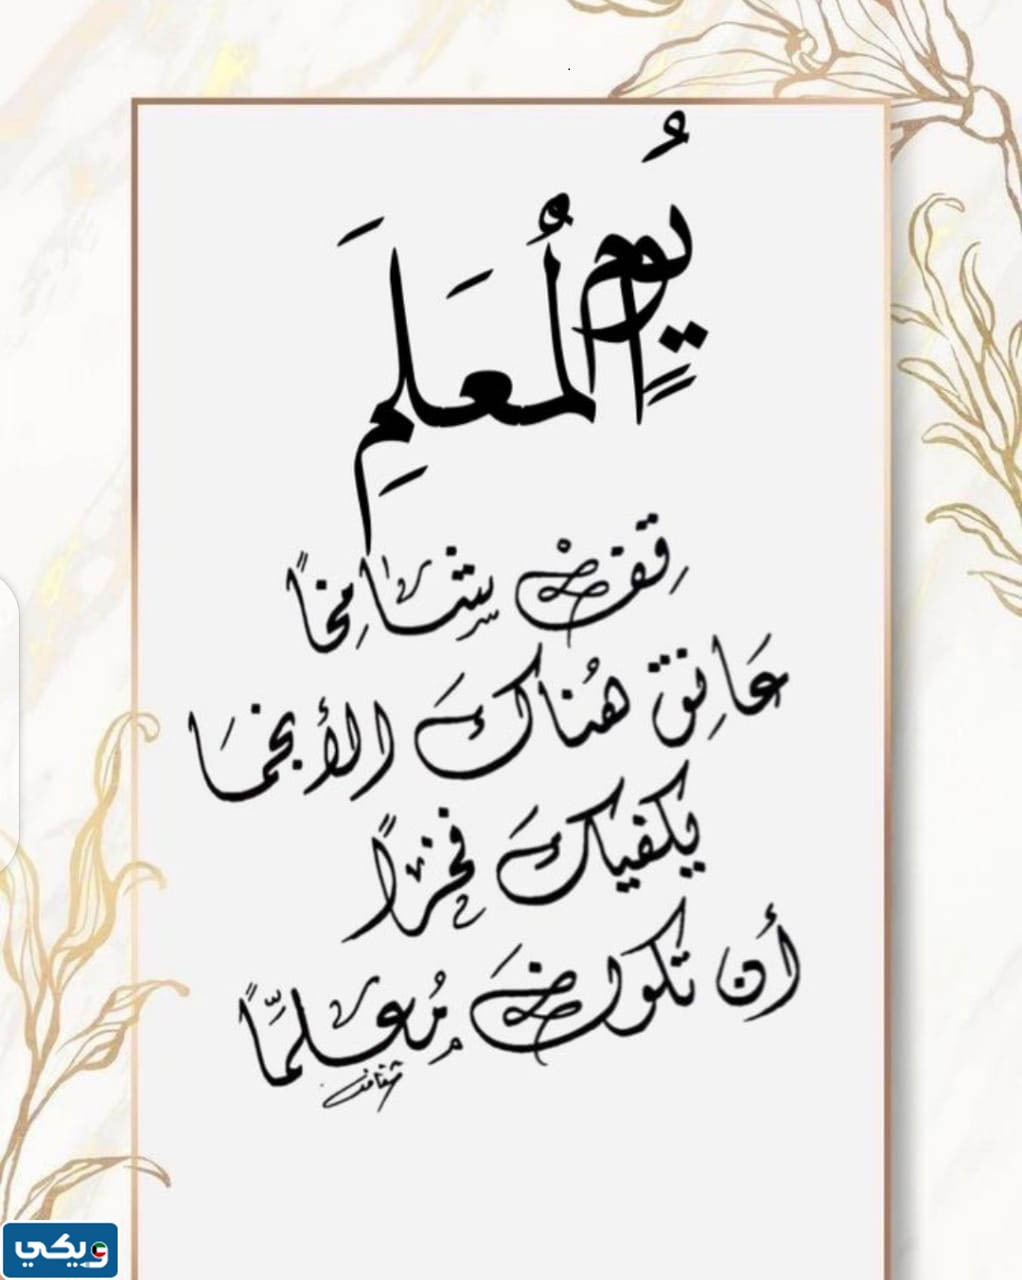 يوم المعلم
قف شامخاً
عانق هناك الأنجما
يكفيك فخراً
أن تكون معلماً
ويكي